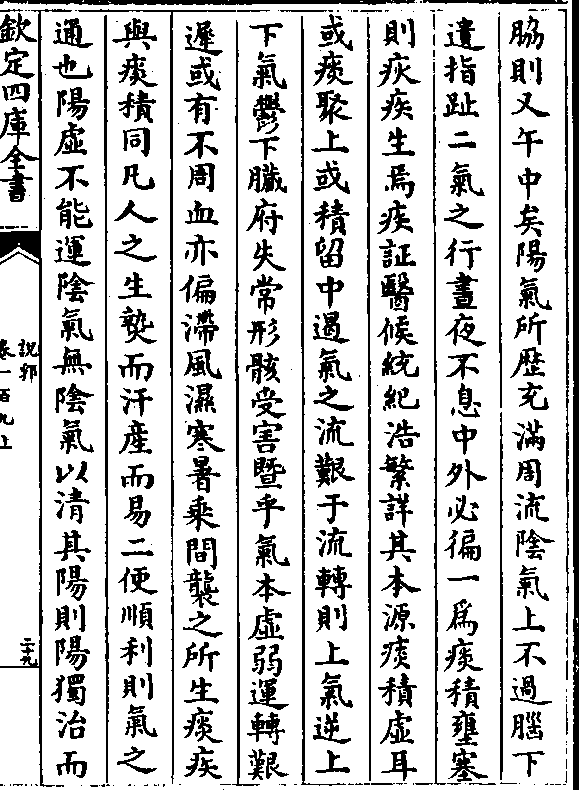 脇則又午中矣陽氣所歴充滿周流陰氣上不過腦下
遺指趾二氣之行晝夜不息中外必徧一為痰積壅塞
則疢疾生焉疾証醫候統紀浩繁詳其本源痰積虛耳
或痰聚上或積留中遏氣之流艱于流轉則上氣逆上
下氣鬱下臟府失常形骸受害暨乎氣本虛弱運轉艱
遲或有不周血亦偏滯風濕寒暑乘間襲之所生痰疾
與痰積同凡人之生𤍠而汗産而易二便順利則氣之
通也陽虛不能運陰氣無陰氣以清其陽則陽獨治而
欽定四庫全書
說郛
卷一百九上
二十九